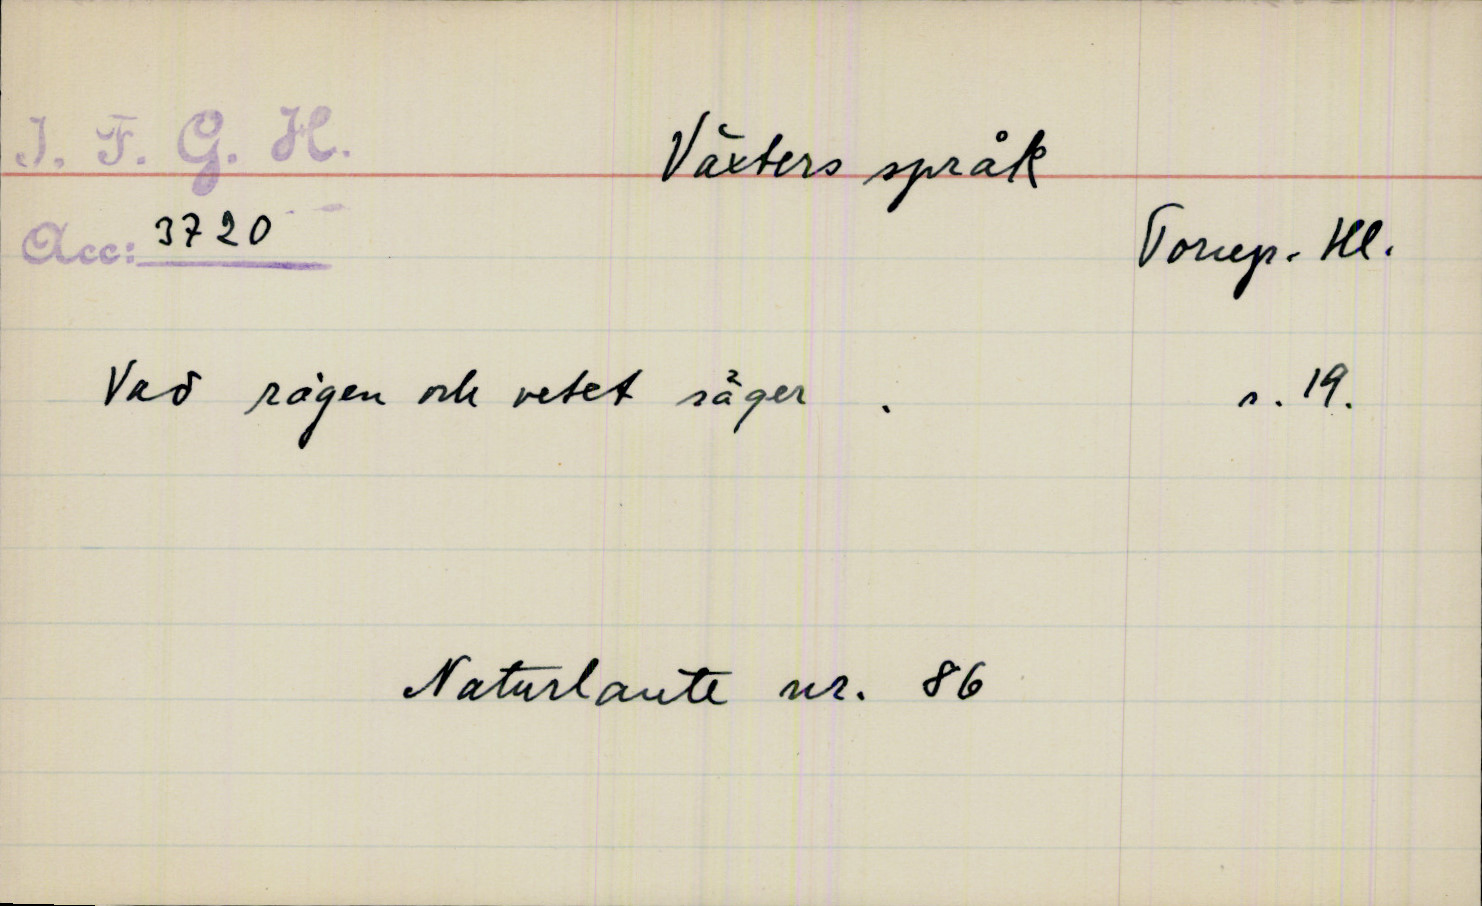 I. F. G. H.
Växters språk
Acc: 3720
Torup. Hl.
Vad rågen och vetet säger . s. 19.
Naturlaute nr. 86